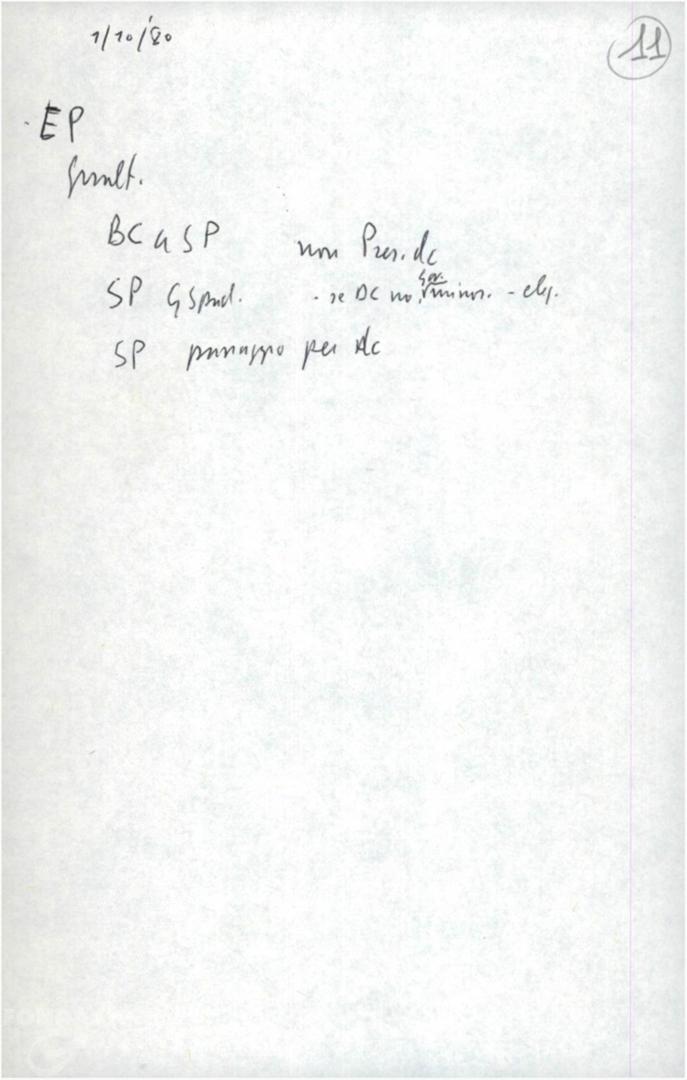 1/10/80
11
· EP
BC a SP non Pres. dc
SP G Spad. - se DC no, gov. minor. - el.
SP passaggio per dc